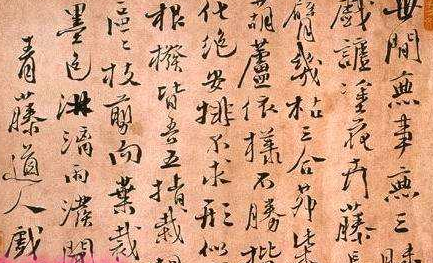 世間無事無三昧
戲謔塗花卉藤長
臂幾枯三合茅柴
葫蘆依樣不勝揩
化絕安排不求形似
根撥皆吾五指栽胡
區〻枝剪而葉裁
墨色淋漓雨潑開
青藤道人戲